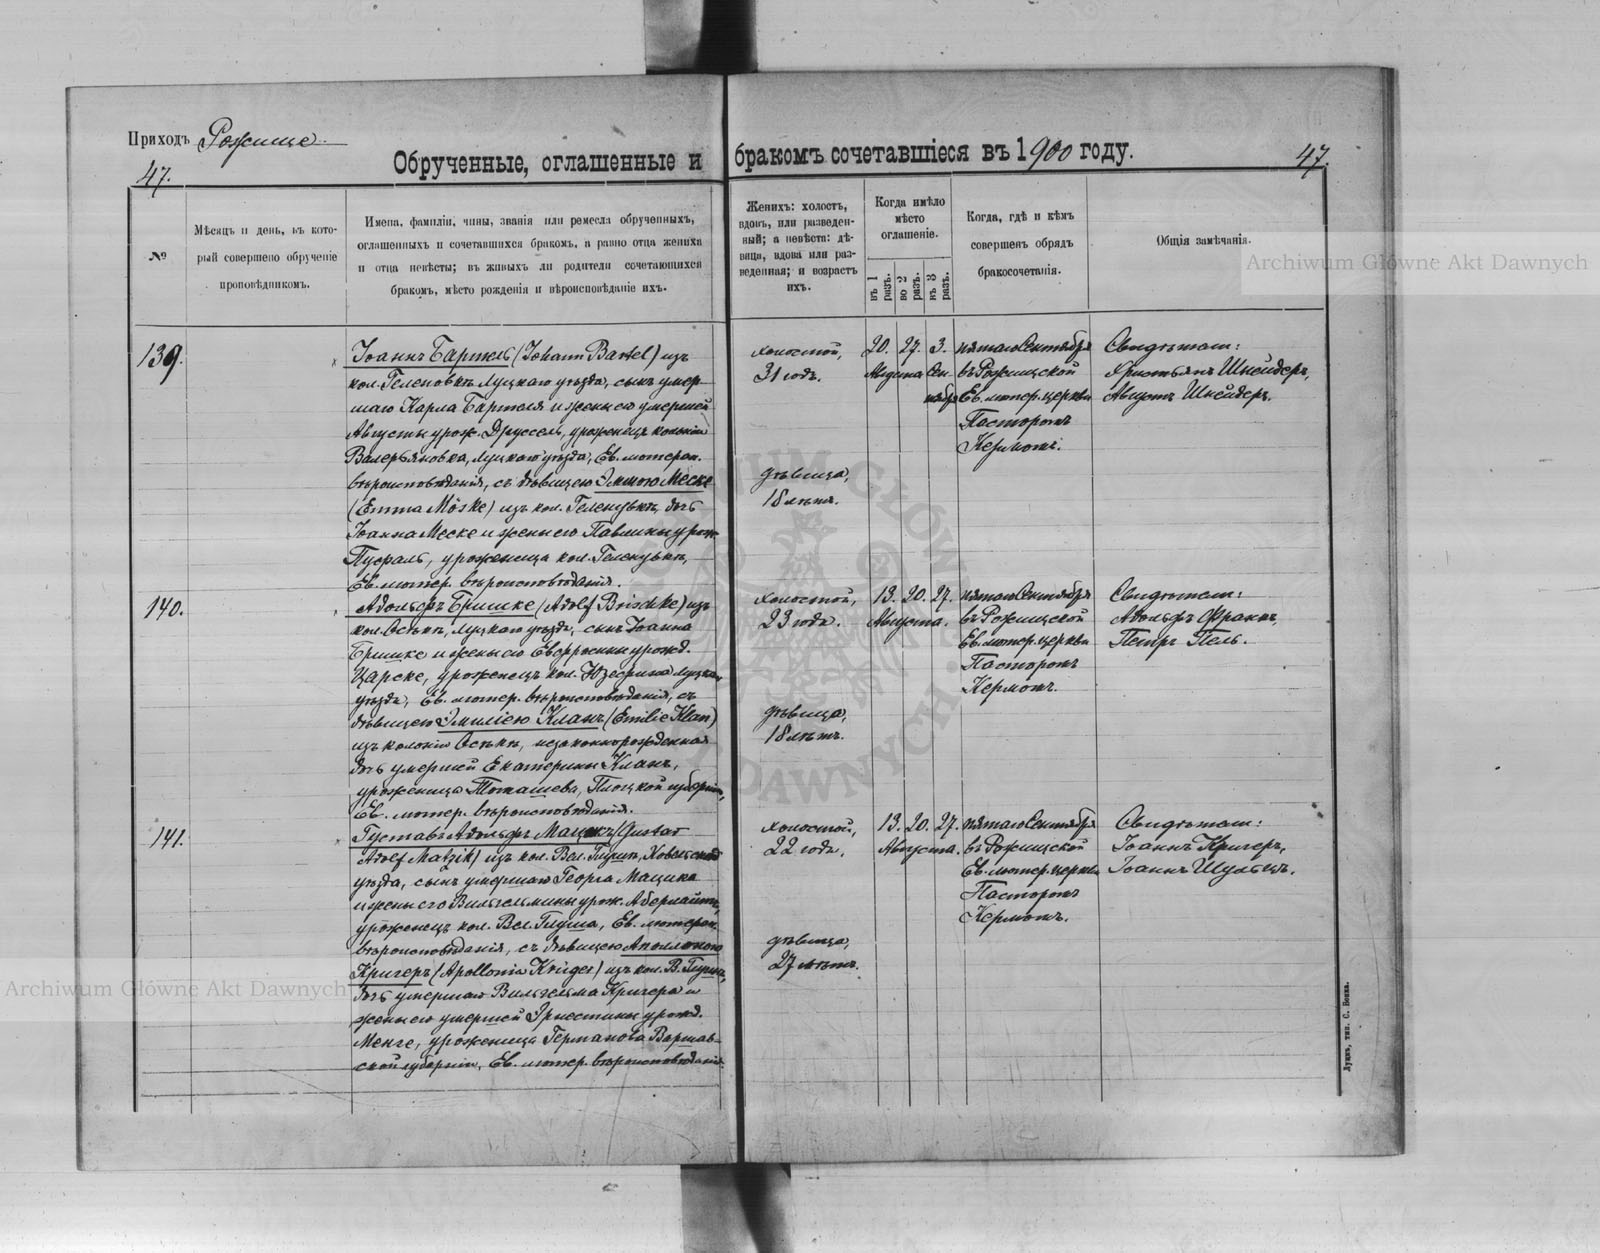 Приходъ Рожище
47.
Обрученные, оглашенные и бракомъ сочетавшіеся въ 1900 году.
47.
№
Мѣсяцъ и день, въ кото-
рый совершено обрученіе
проповѣдникомъ.
Имена, фамиліи, чины, званія или ремесла обрученныхъ,
оглашенныхъ и сочетавшихся бракомъ, а равно отца жениха
и отца невѣсты; въ живыхъ ли родители сочетающихся
бракомъ, мѣсто рожденія и вѣроисповѣданіе ихъ.
Женихъ: холостъ,
вдовъ, или разведен-
ный; а невѣста: дѣ-
вица, вдова или раз-
веденная; и возрастъ
ихъ.
Когда имѣло
мѣсто
оглашеніе.
въ 1 разъ.
во 2 разъ.
въ 3 разъ.
Когда, гдѣ и кѣмъ
совершенъ обрядъ
бракосочетанія.
Общія замѣчанія.
139.
Іоаннъ Бартель (Johann Bartel) изъ
кол. Геленовкъ Луцкаго уѣзда, сынъ умер-
шаго Карла Бартеля и жены его умершей
Августы урож. Друссель, уроженецъ колоніи
Валерьяновка, Луцкаго уѣзда, Ев. лютеран.
вѣроисповѣданія, съ дѣвицею Эммою Меске
(Emma Möske) изъ кол. дочь
Іоанна Меске и жены его Павлины урож.
Пуфаль, уроженица кол.
Ев. лютер. вѣроисповѣданія.
холостой,
31 годъ.
дѣвица,
18 лѣтъ.
20. 27. 3.
Августа Сен
тября
пятаго Сентября
въ Рожищской
Ев. лютер. церкви
Пасторомъ
Кермомъ.
Свидѣтели:
Христьянъ Шнейдеръ,
Августъ Шнейдеръ.
140.
Адольфъ Бришке (Adolf Brischke) изъ
кол. Осѣкъ, Луцкаго уѣзда, сынъ Іоанна
Бришке и жены его Евфрозины урожд.
Царске, уроженецъ кол. Юзефина Луцкаго
уѣзда, Ев. лютер. вѣроисповѣданія, съ
дѣвицею Эмиліею Кланъ (Emilie Klan)
изъ колоніи Осѣкъ, незаконнорожденная
дочь умершей Екатерины Кланъ,
уроженица Плоцкой губерніи,
Ев. лютер. вѣроисповѣданія.
холостой,
23 года.
дѣвица,
18 лѣтъ.
13. 20. 27.
Августа.
пятаго Сентября
въ Рожищской
Ев. лютер. церкви
Пасторомъ
Кермомъ.
Свидѣтели:
Адольфъ Франкъ,
Петръ Пель.
141.
Густавъ Адольфъ Мацикъ (Gustav
Adolf Matzik) изъ кол. Вел. Глуша, Ковельскаго
уѣзда, сынъ умершаго Георга Мацика
и жены его Вильгельмины урож.
уроженецъ кол. Вел. Глуша, Ев. лютеран.
вѣроисповѣданія, съ дѣвицею Аполлоніею
Кригеръ (Apollonia Krüger) изъ кол. В. Глуша,
дочь умершаго Вильгельма Кригера и
жены его умершей Эрнестины урожд.
Менге, уроженица Германова Варшав-
ской губерніи, Ев. лютер. вѣроисповѣданія.
холостой,
22 года.
дѣвица,
27 лѣтъ.
13. 20. 27.
Августа.
пятаго Сентября
въ Рожищской
Ев. лютер. церкви
Пасторомъ
Кермомъ.
Свидѣтели:
Іоаннъ Кригеръ,
Іоаннъ Шульцъ.
Луцкъ, тип. С. Бонка.
Archiwum Główne Akt Dawnych
Archiwum Główne Akt Dawnych